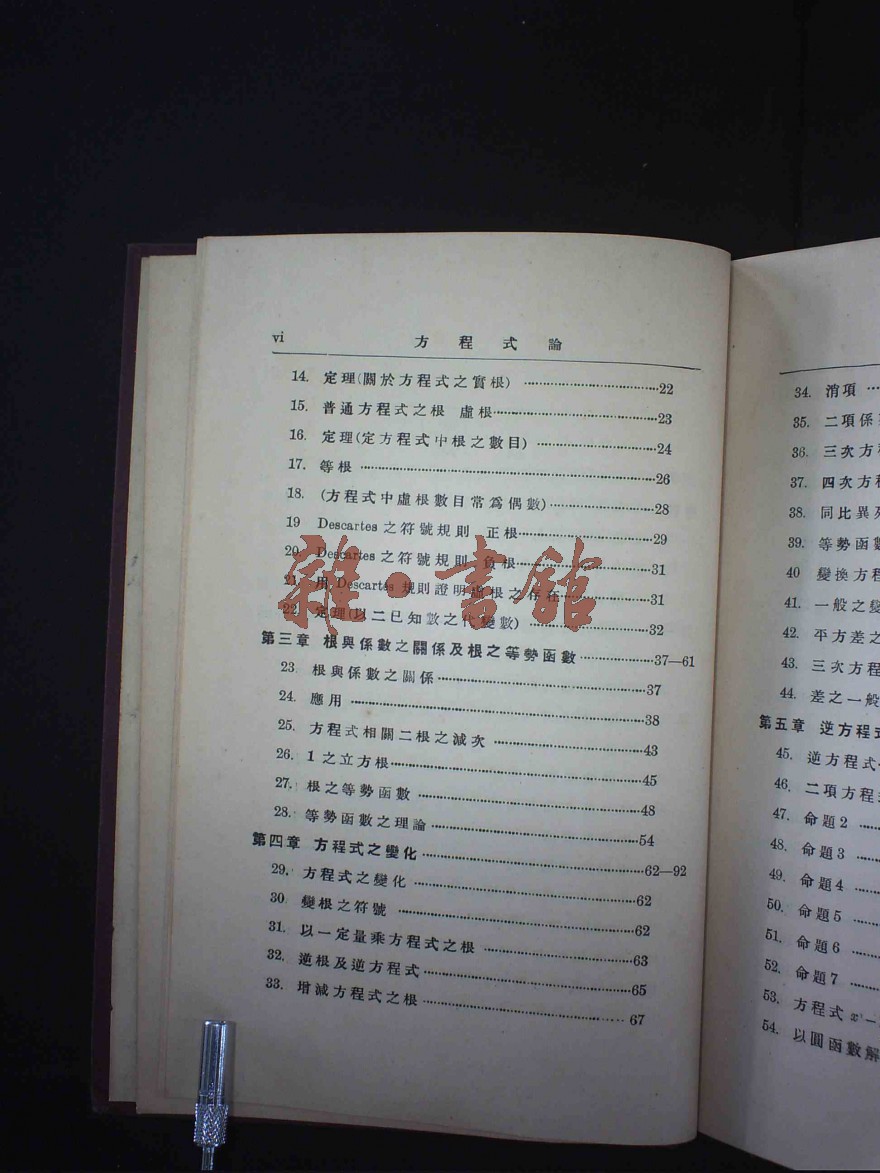 vi 方程式論
14. 定理(關於方程式之實根) ……22
15. 普通方程式之根 虛根……23
16. 定理(定方程式中根之數目) ……24
17. 等根 ……26
18. (方程式中虛根數目常爲偶數)……28
19 Descartes 之符號規則 正根……29
20. Descartes 之符號規則 負根……31
21. 用 Descartes 規則證明虛根之存在……31
22. 定理(以二已知數之代變數) ……32
第三章 根與係數之關係及根之等勢函數……37—61
23. 根與係數之關係……37
24. 應用……38
25. 方程式相關二根之減次 ……43
26. 1 之立方根……45
27. 根之等勢函數……48
28. 等勢函數之理論……54
第四章 方程式之變化……62—92
29. 方程式之變化……62
30 變根之符號 ……62
31. 以一定量乘方程式之根 ……63
32. 逆根及逆方程式……65
33. 增減方程式之根……67
雜·書館
34. 消項 …
35. 二項係
36. 三次方
37. 四次方
38. 同比異
39. 等勢函
40 變換方程
41. 一般之變
42. 平方差之
43. 三次方程
44. 差之一般
第五章 逆方程式
45. 逆方程式
46. 二項方程
47. 命題2 ……
48. 命題3 ……
49. 命題4 ……
50. 命題5 ……
51. 命題6 ……
52. 命題7 ……
53. 方程式 x
54. 以圓函數解